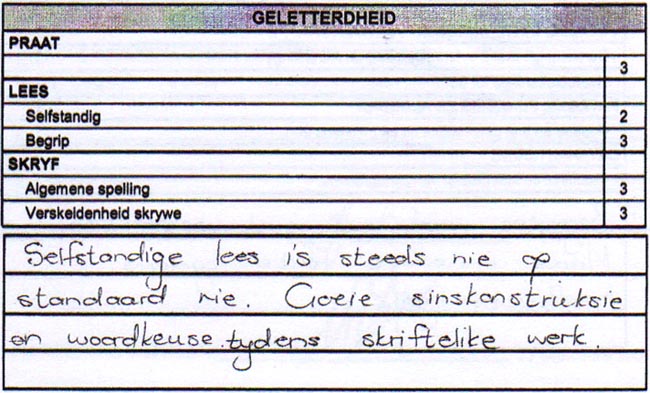 GELETTERDHEID
PRAAT
3
LEES
Selfstandig 2
Begrip 3
SKRYF
Algemene spelling 3
Verskeidenheid skrywe 3
Selfstandige lees is steeds nie op
standaard nie. Goeie sinskonstruksie
en woordkeuse tydens skriftelike werk.